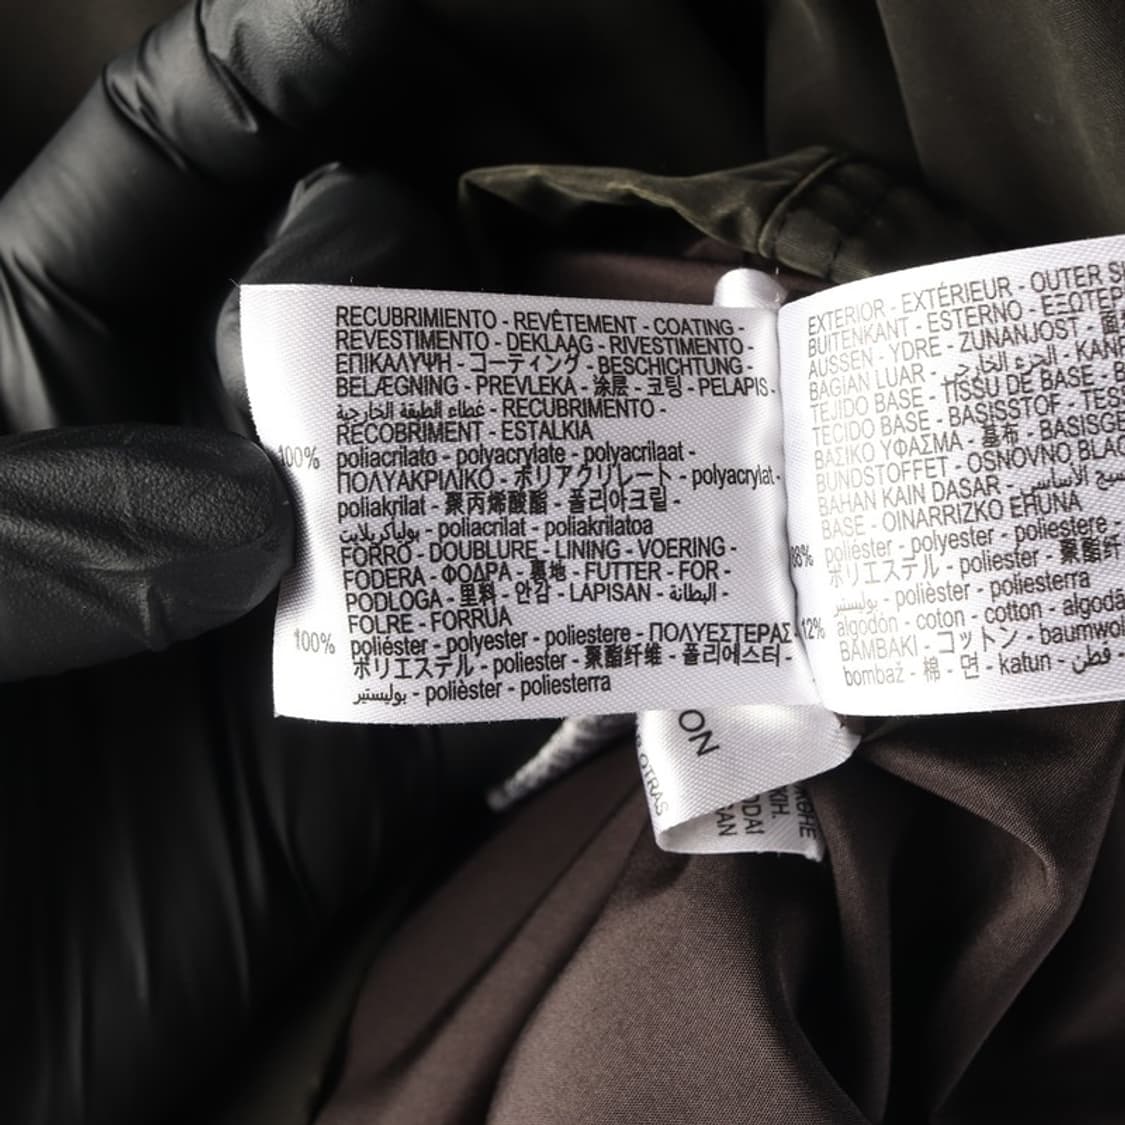 RECUBRIMIENTO - REVÊTEMENT - COATING -
REVESTIMENTO - DEKLAAG - RIVESTIMENTO -
ΕΠΙΚΑΛΥΨΗ - コーティング - BESCHICHTUNG -
BELÆGNING - PREVLEKA - 涂层 - 코팅 - PELAPIS -
غطاء الطبقة الخارجية - RECUBRIMENTO -
RECOBRIMENT - ESTALKIA
100% poliacrilato - polyacrylate - polyacrilaat -
ΠΟΛΥΑΚΡΙΛΙΚΟ - ポリアクリレート - polyacrylat -
poliakrilat - 聚丙烯酸酯 - 폴리아크릴 -
بولياكريلايت - poliacrilat - poliakrilatoa
FORRO - DOUBLURE - LINING - VOERING -
FODERA - ΦΟΔΡΑ - 裏地 - FUTTER - FOR -
PODLOGA - 里料 - 안감 - LAPISAN - البطانة -
FOLRE - FORRUA
100% poliéster - polyester - poliestere - ΠΟΛΥΕΣΤΕΡΑΣ -
ポリエステル - poliester - 聚酯纤维 - 폴리에스터 -
بوليستير - polièster - poliesterra
EXTERIOR - EXTÉRIEUR - OUTER
BUITENKANT - ESTERNO -
AUSSEN - YDRE - ZUNANJOST -
BAGIAN LUAR - الجزء الخارجي -
TEJIDO BASE - TISSU DE BASE -
TECIDO BASE - BASISSTOF -
ΒΑΣΙΚΟ ΥΦΑΣΜΑ - 基布 -
BUNDSTOFFET - OSNOVNO
BAHAN KAIN DASAR -
BASE - OINARRIZKO EHUNA
poliéster - polyester - poliestere -
ポリエステル - poliester -
بوليستير - polièster - poliesterra
12% algodón - coton - cotton -
BAMBAKI - コットン -
bombaž - 棉 - 면 - katun - قطن -
ON
OTRAS